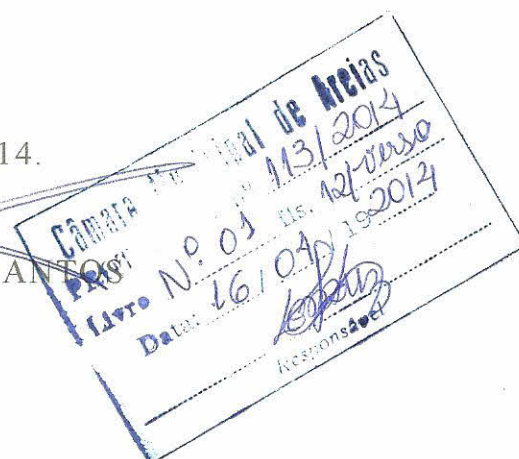 14.
ANTOS
Câmara Municipal de Areias
Nº 113/2014
Livro Nº 01 fls. 12/verso
Data: 16/04/192014
Responsável